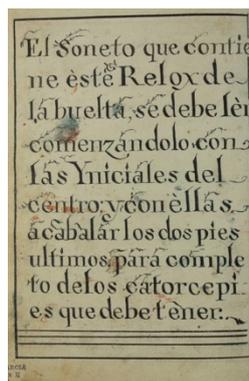 El Soneto que contie
ne èste el Relox de
la buelta, se debe lèr
comenzándolo con
las Yniciáles del
centro; y con èllas
acabalár los dos pies
ultimos, pára comple
to de los catorce pi
es que debe tèner: